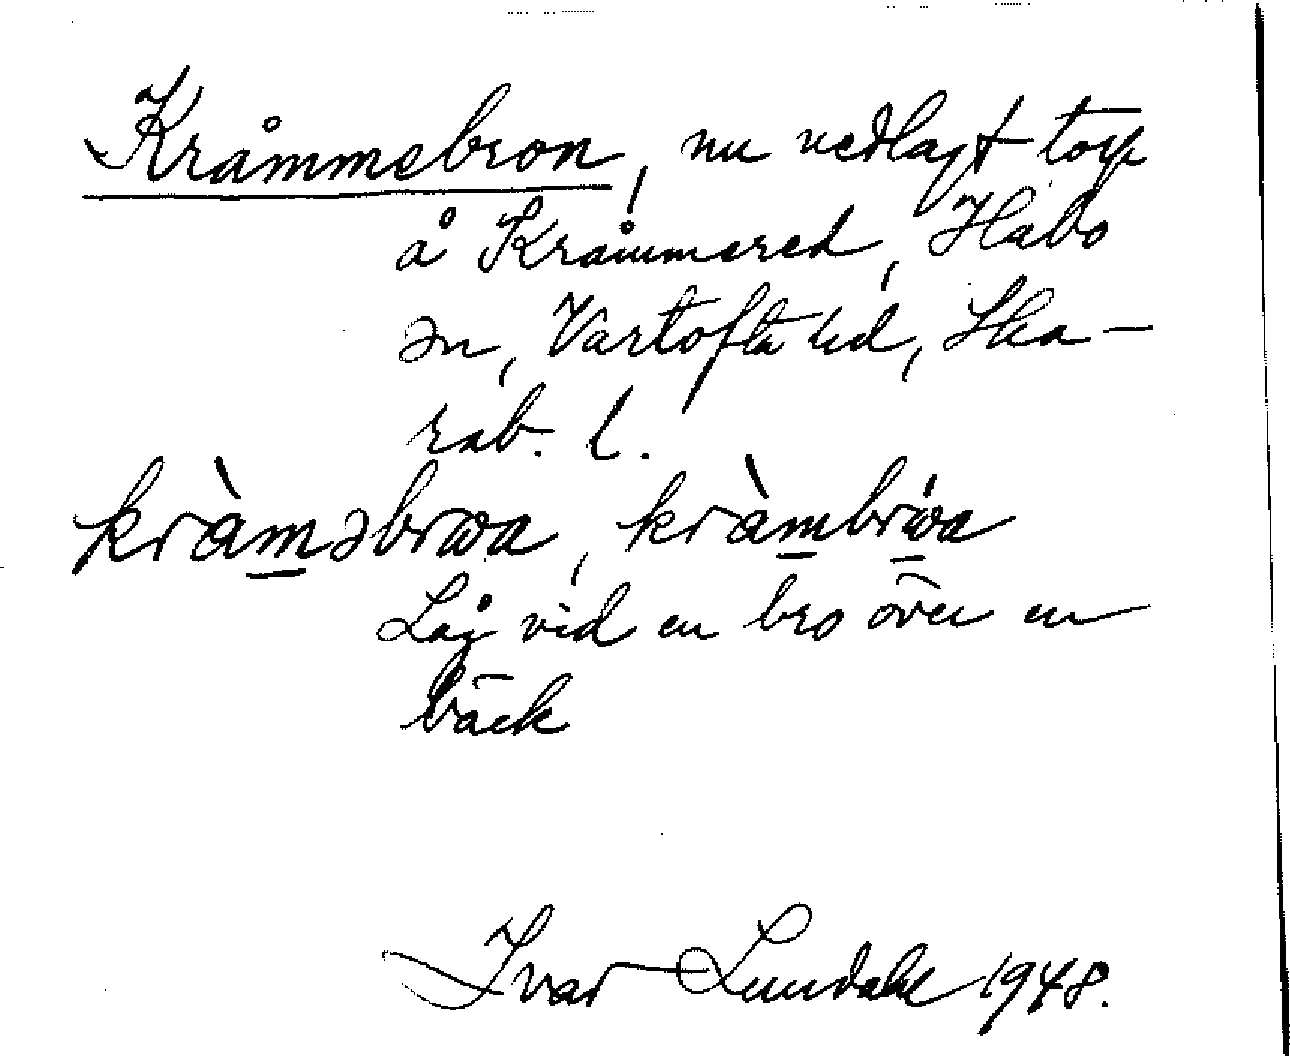 Kråmmebron, nu nedlagt torp
å Kråmmered, Habo
sn, Vartofta hd, Ska-
rab. l.
kràm̲əbrωa, kràm̲brώ̲a
Låg vid en bro över en
bäck
Ivar Lundahl 1948.